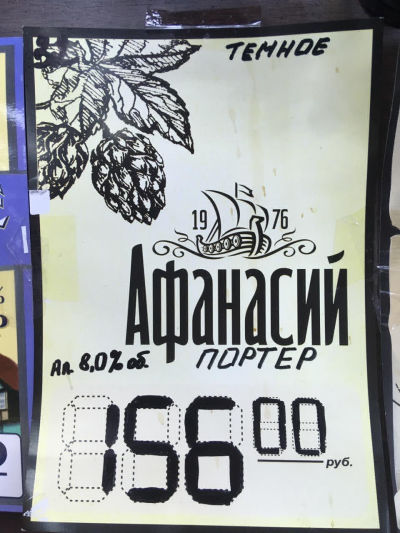 ТЕМНОЕ
19 76
Афанасий
ПОРТЕР
Ал. 8,0% об.
156 00
руб.